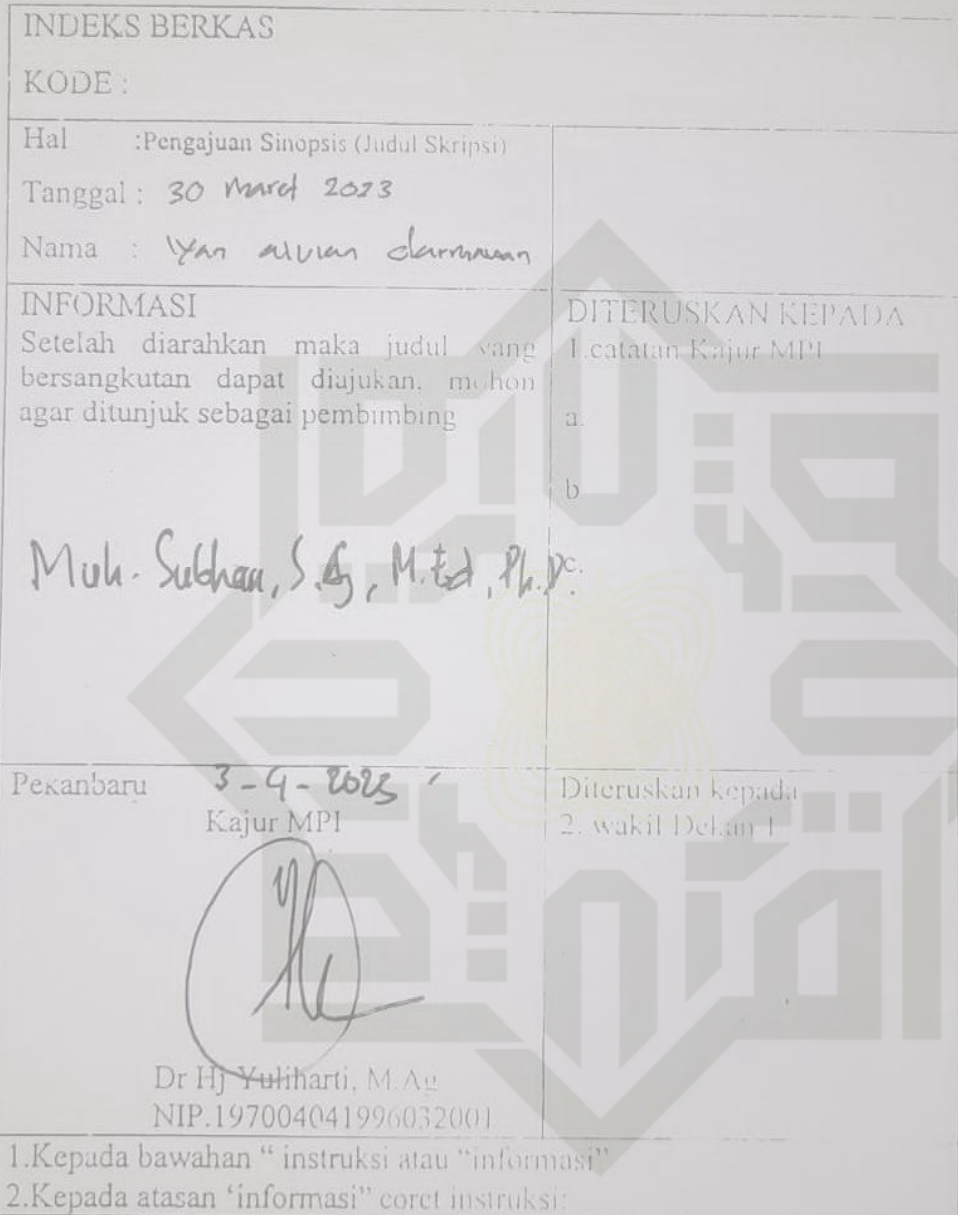 INDEKS BERKAS
KODE :
Hal :Pengajuan Sinopsis (Judul Skripsi)
Tanggal : 30 Maret 2023
Nama : Iyan alvian darmawan
INFORMASI
Setelah diarahkan maka judul yang
bersangkutan dapat diajukan. mohon
agar ditunjuk sebagai pembimbing
Muh. Subhan, S.Ag, M.Ed, Ph.D
DITERUSKAN KEPADA
1.catatan Kajur MPI
a.
b
c.
Pekanbaru 3-4-2023
Kajur MPI
Dr Hj Yuliharti, M.Ag
NIP.197004041996032001
Diteruskan kepada
2. wakil Dekan 1
1.Kepada bawahan “ instruksi atau “informasi”
2.Kepada atasan ‘informasi” coret instruksi: